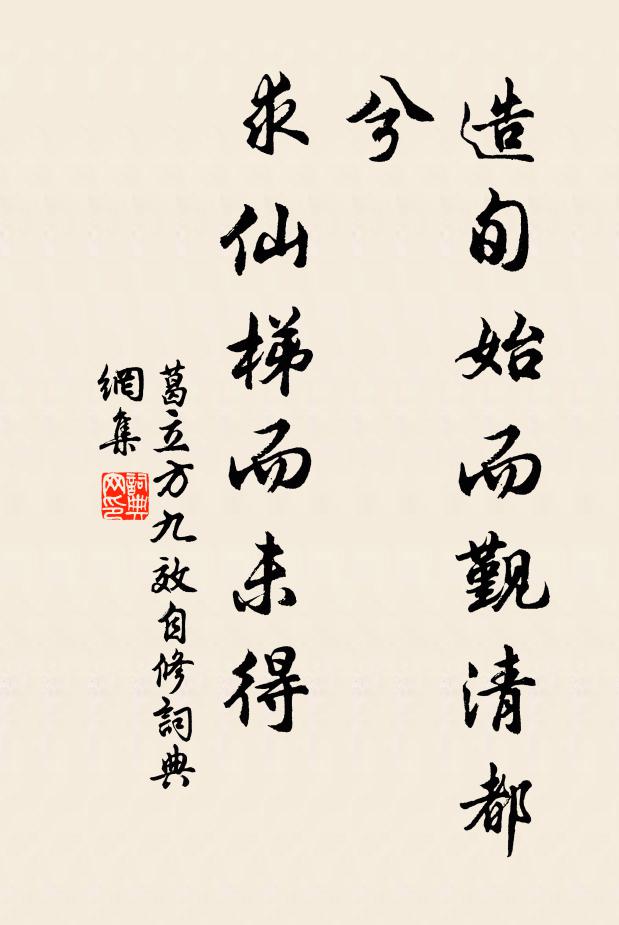 造旬始而觐清都
兮
求仙梯而未得
葛立方九效自修詞典
網集
詞典
网印